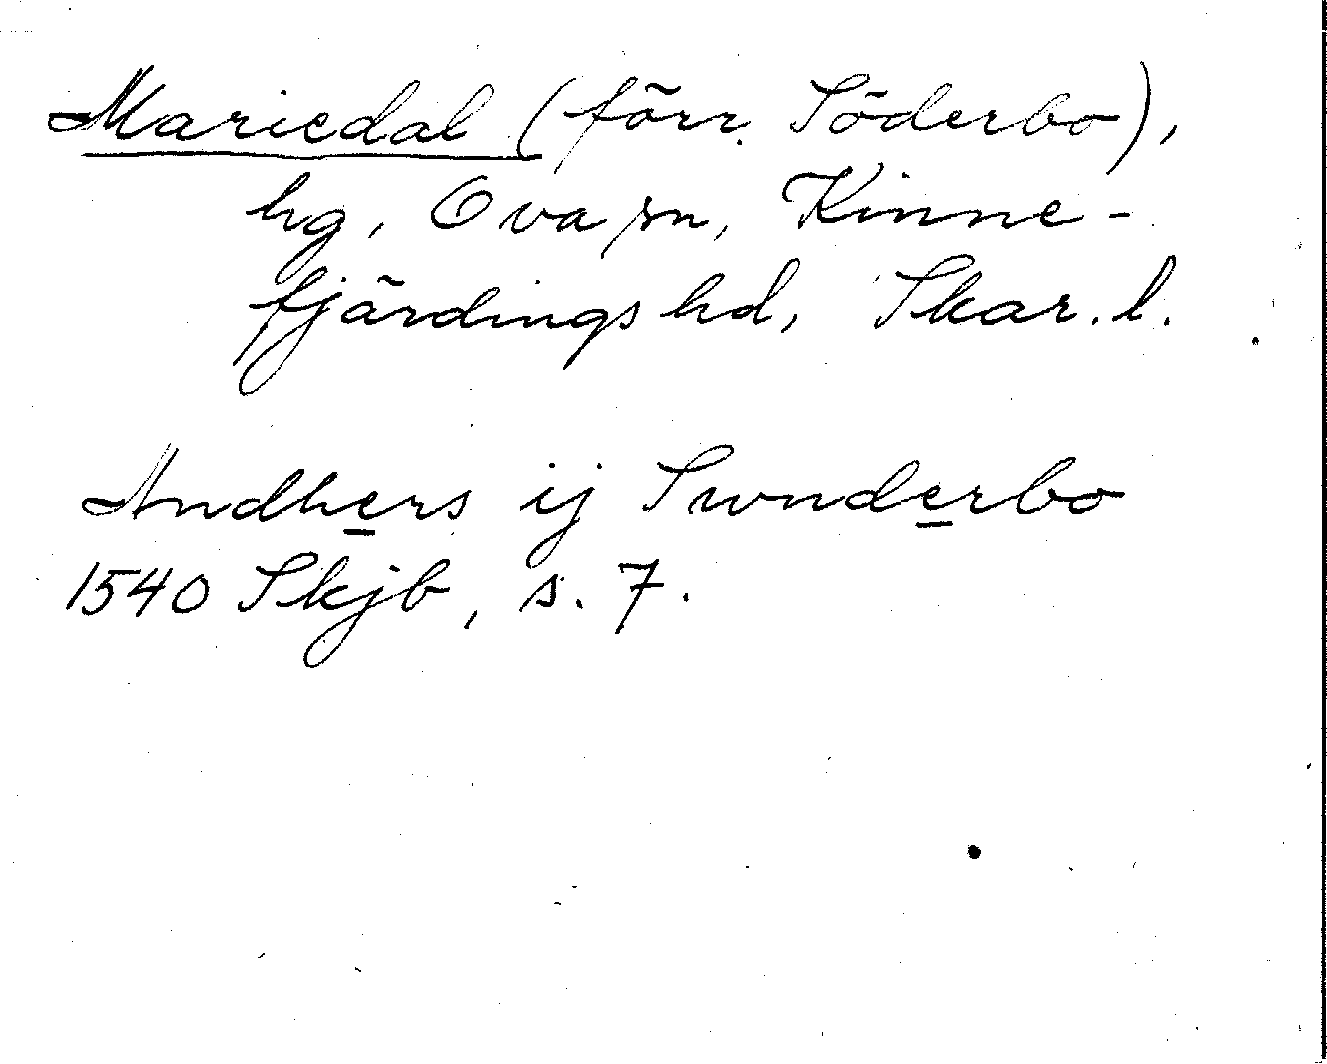 Mariedal (förr. Söderbo),
hg, Ova sn, Kinne-
fjärdings hd, Skar. l.
Andhers ij Swnderbo
1540 Skjb, s. 7.